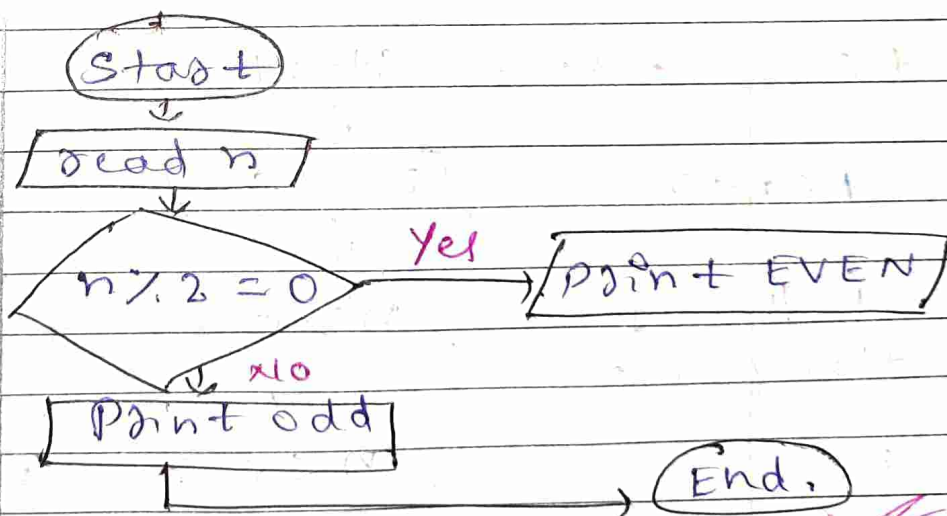 Start
read n
n % 2 = 0
Yes
Print EVEN
No
Print odd
End.